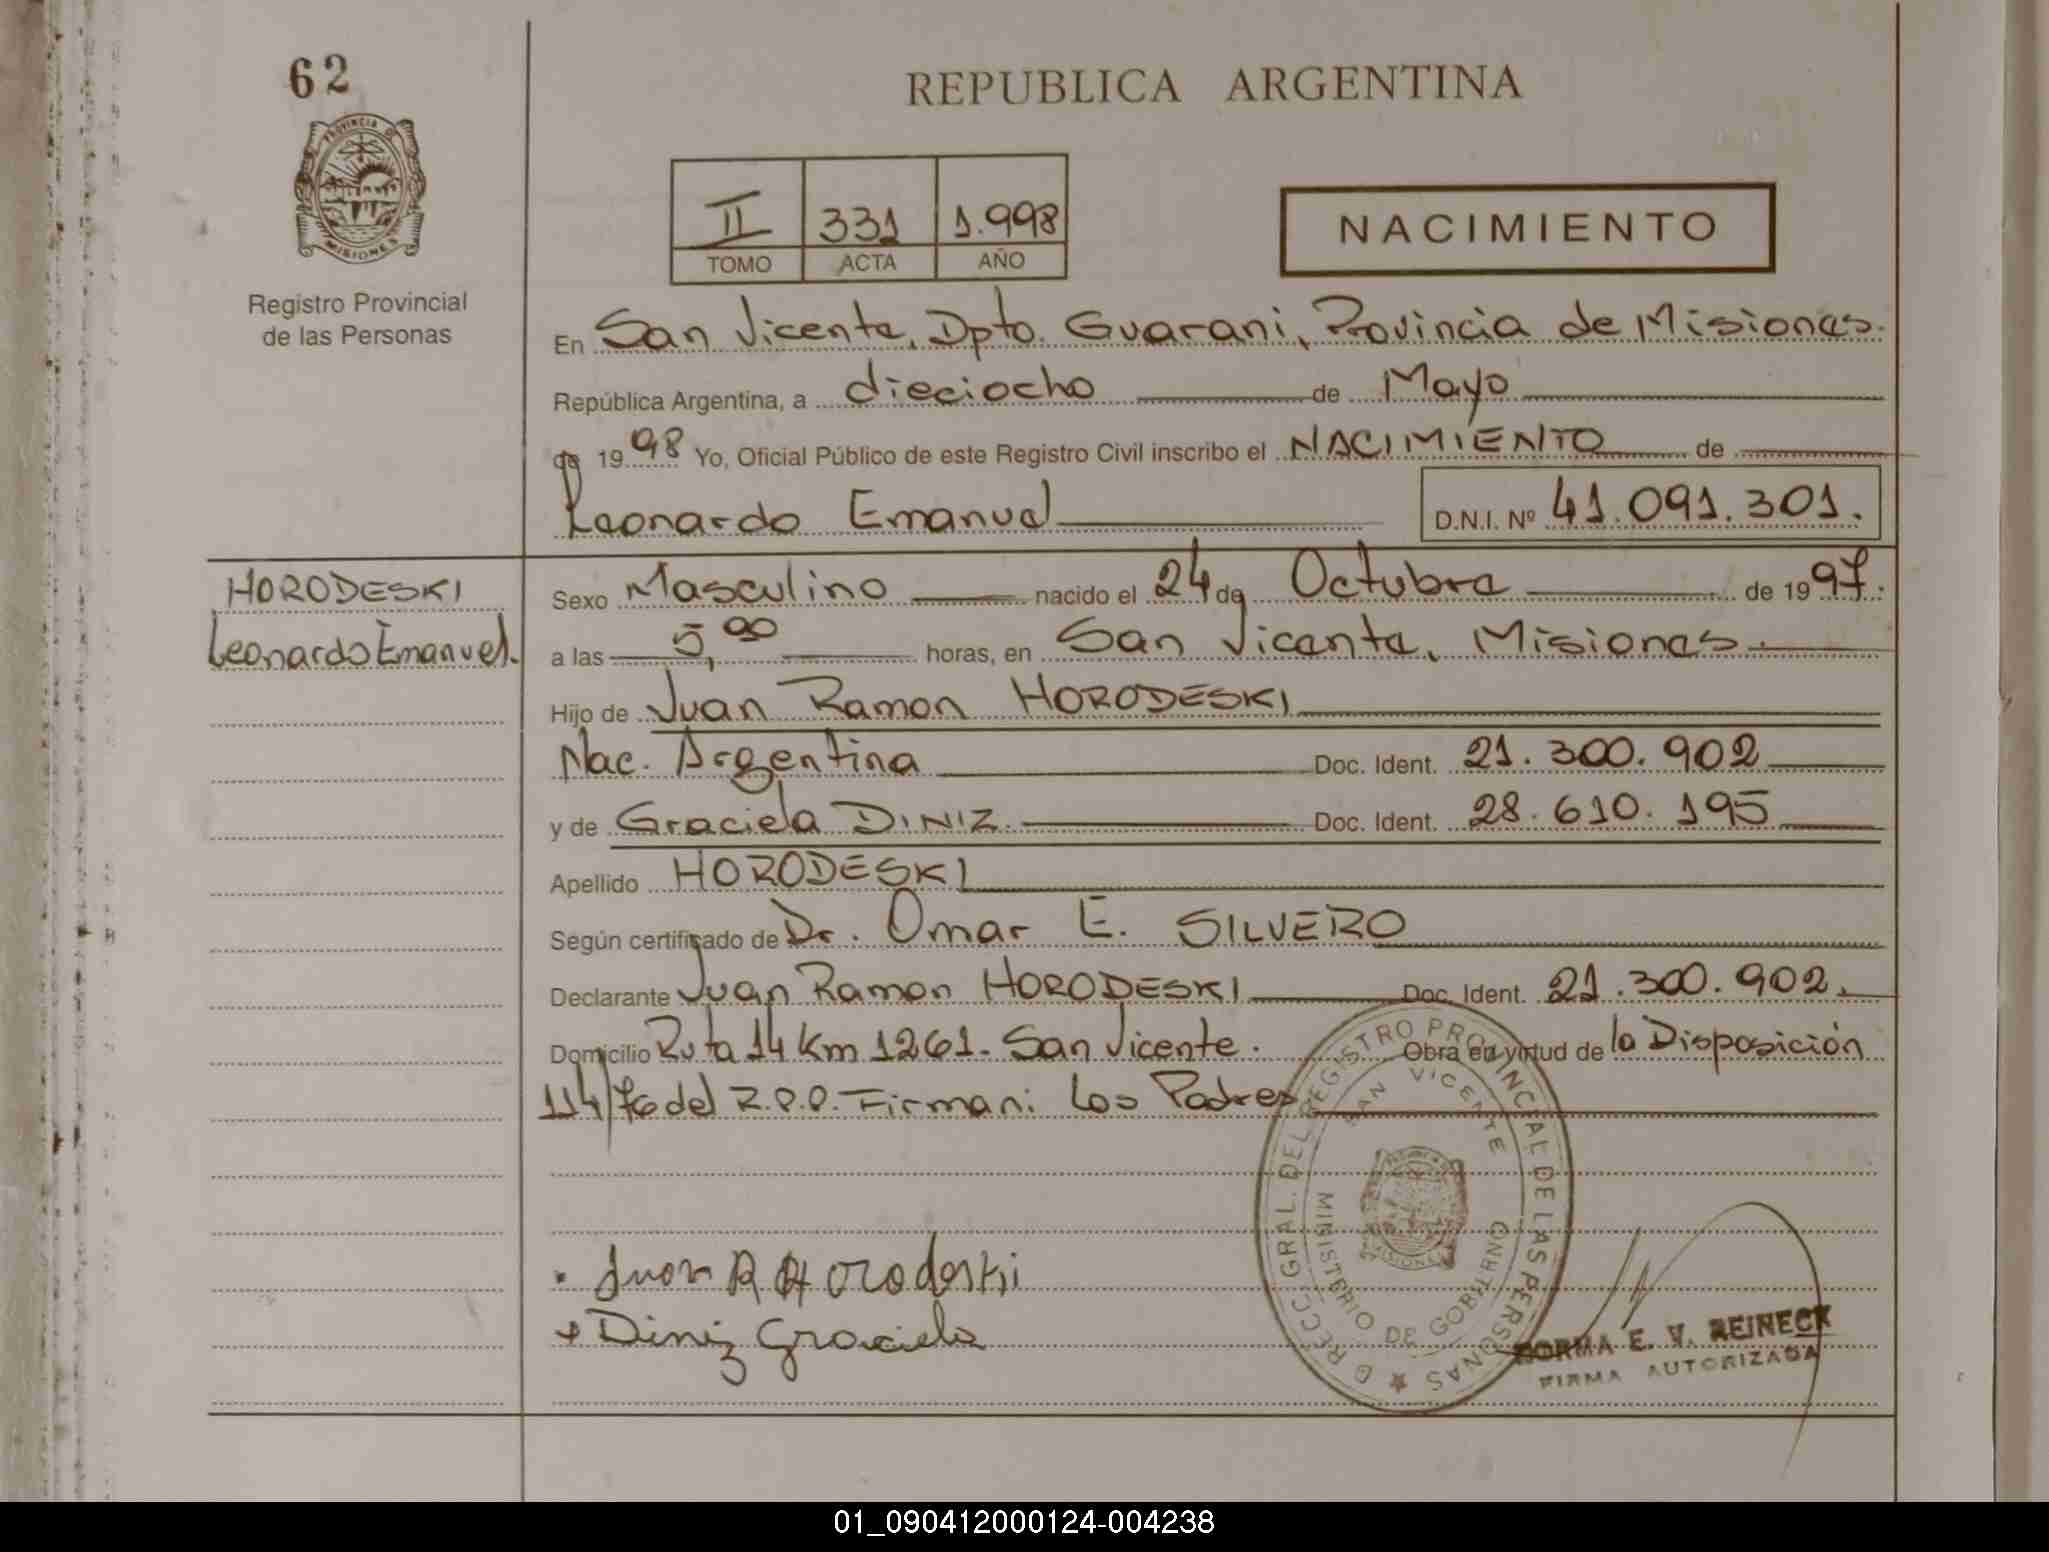 62
PROVINCIA DE
MISIONES
Registro Provincial
de las Personas
REPUBLICA ARGENTINA
II 331 1.998
TOMO ACTA AÑO
NACIMIENTO
En San Vicente, Dpto. Guarani, Provincia de Misiones.
República Argentina, a dieciocho de Mayo
de 1998 Yo, Oficial Público de este Registro Civil inscribo el NACIMIENTO de
Leonardo Emanuel D.N.I. Nº 41.091.301.
HORODESKI
Leonardo Emanuel.
Sexo Masculino nacido el 24 de Octubre de 1997.
a las 5,00 horas, en San Vicente, Misiones.
Hijo de Juan Ramon HORODESKI
Nac. Argentina Doc. Ident. 21.300.902
y de Graciela DINIZ. Doc. Ident. 28.610.195
Apellido HORODESKI
Según certificado de Dr. Omar E. SILVERO
Declarante Juan Ramon HORODESKI Doc. Ident. 21.300.902.
Domicilio Ruta 14 Km 1261. San Vicente. Obra en virtud de la Disposición
114/76 del R.P.P. Firman: Los Padres
DIRECC. GRAL. DEL REGISTRO PROVINCIAL DE LAS PERSONAS
SAN VICENTE
MINISTERIO DE GOBIERNO
Juan R Horodeski
Diniz Graciela
NORMA E. V. REINECK
FIRMA AUTORIZADA
01_090412000124-004238